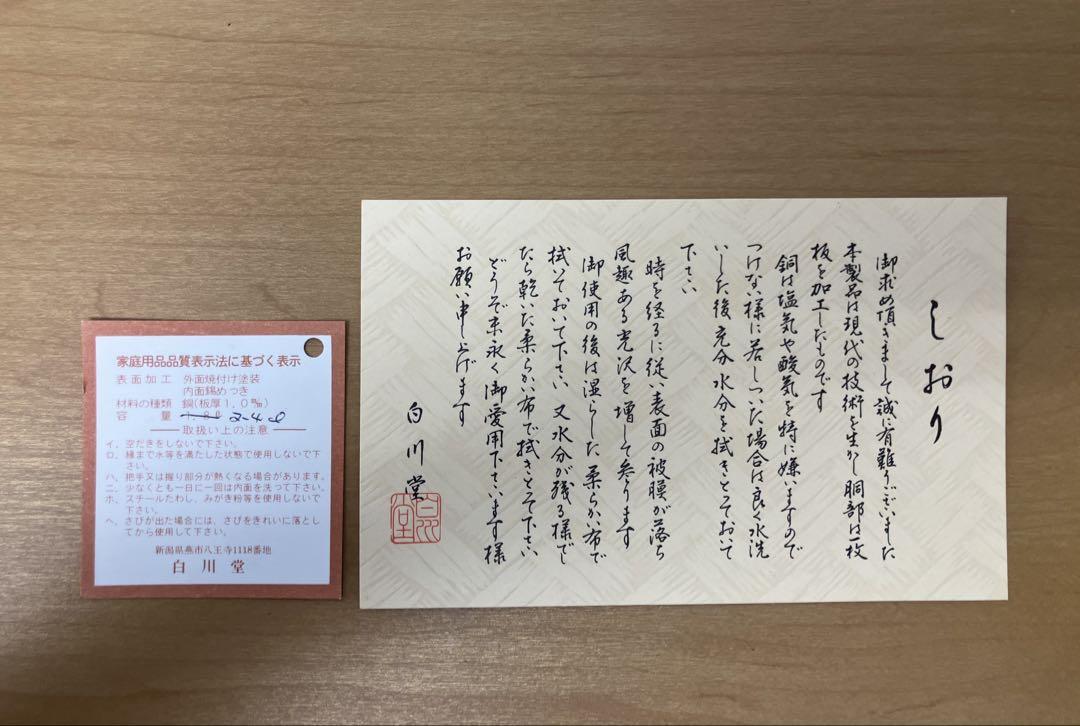 家庭用品品質表示法に基づく表示
表面加工 外面焼付け塗装
内面錫めっき
材料の種類 銅(板厚1.0㎜)
容量 2.4ℓ
取扱い上の注意
イ、空だきをしないで下さい。
ロ、縁まで水等を満たした状態で使用しないで下
さい。
ハ、把手又は握り部分が熱くなる場合があります。
ニ、少なくとも一日に一回は内面を洗って下さい。
ホ、スチールたわし、みがき粉等を使用しないで
下さい。
ヘ、さびが出た場合には、さびをきれいに落とし
てから使用して下さい。
新潟県燕市八王寺1118番地
白川堂
しおり
御求め頂きまして誠に有難うございました
本製品は現代の技術を生かし胴部は一枚
板を加工したものです
銅は塩気や酸気を特に嫌いますので
つけない様に若しついた場合は良く水洗
いした後充分水分を拭きとっておいて
下さい
時を経るに従い表面の被膜が落ち
風趣ある光沢を増して参ります
御使用の後は湿らした柔らかい布で
拭いておいて下さい 又水分が残る様でし
たら乾いた柔らかい布で拭きとって下さい
どうぞ末永く御愛用下さいます様
お願い申し上げます
白川堂